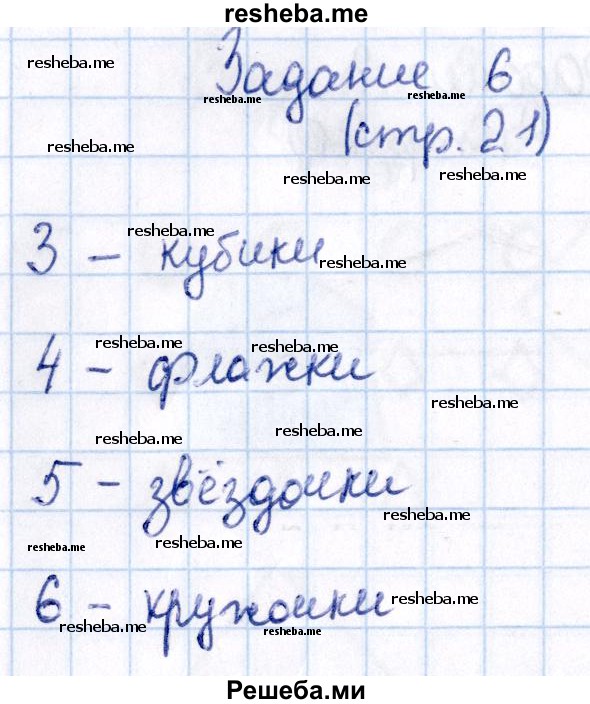 resheba.me
resheba.me
Задание 6
resheba.me resheba.me
resheba.me (стр. 21)
resheba.me resheba.me
resheba.me
3 - кубики resheba.me
resheba.me resheba.me
4 - флажки
resheba.me
resheba.me resheba.me
5 - звёздочки
resheba.me
resheba.me resheba.me
6 - кружочки resheba.me
resheba.me resheba.me
Решеба.ми